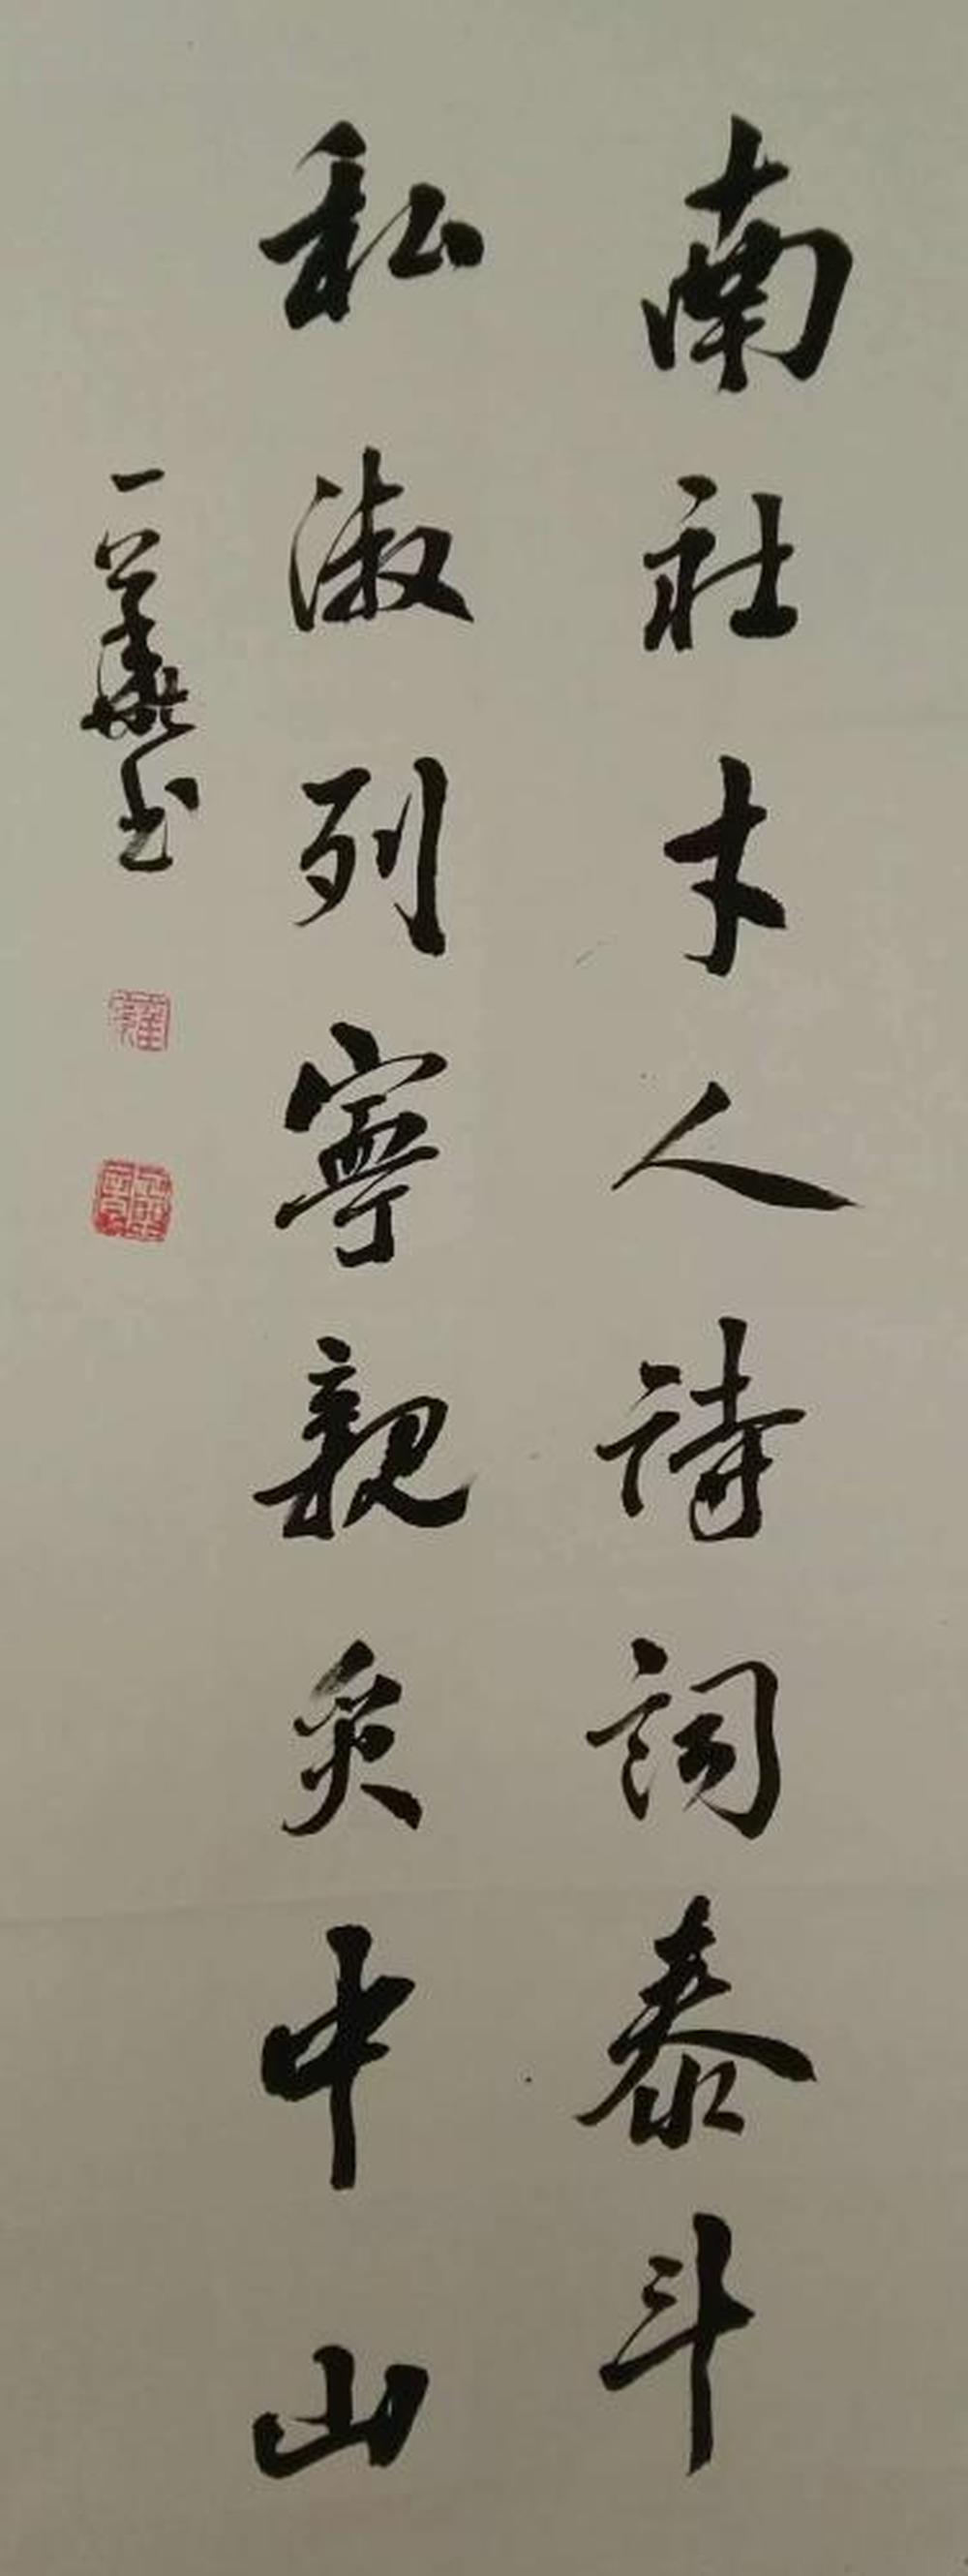 南社木人詩詞泰斗
私淑列寧親炙中山
一義书